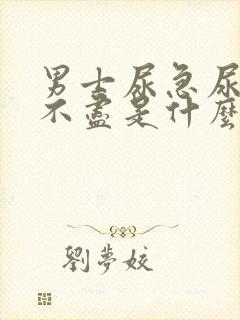 男士尿急尿
不盡是什麼
劉夢姣